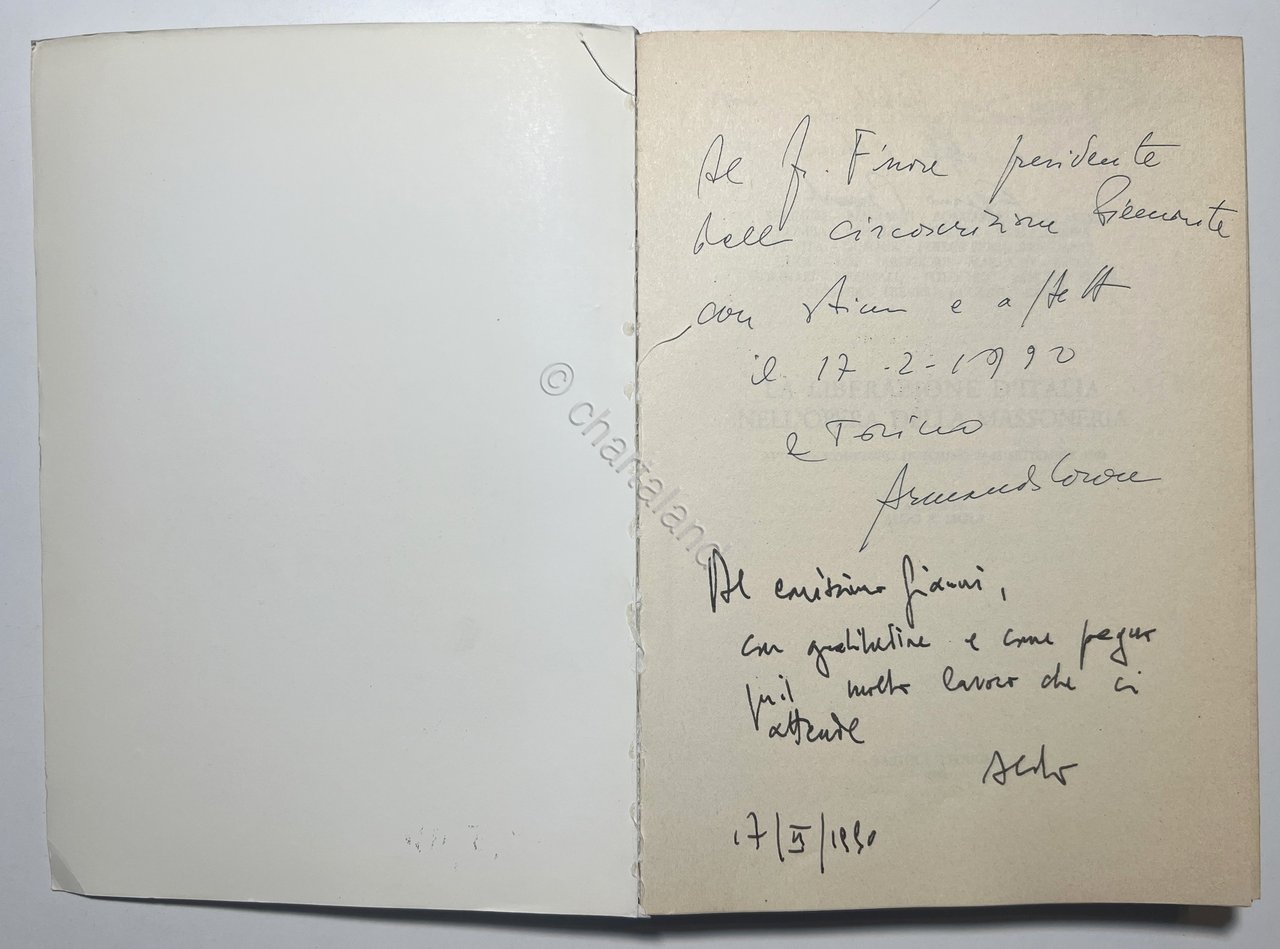 Al fr. Fiore presidente
della circoscrizione Piemonte
con stima e affetto
il 17-2-1990
a Torino
Armando Corona
Al carissimo Gianni,
con gratitudine e come pegno
pel molto lavoro che ci
attende
Aldo
17/II/1990
© chartaland
LA LIBERAZIONE D'ITALIA
NELL'OPERA DELLA MASSONERIA